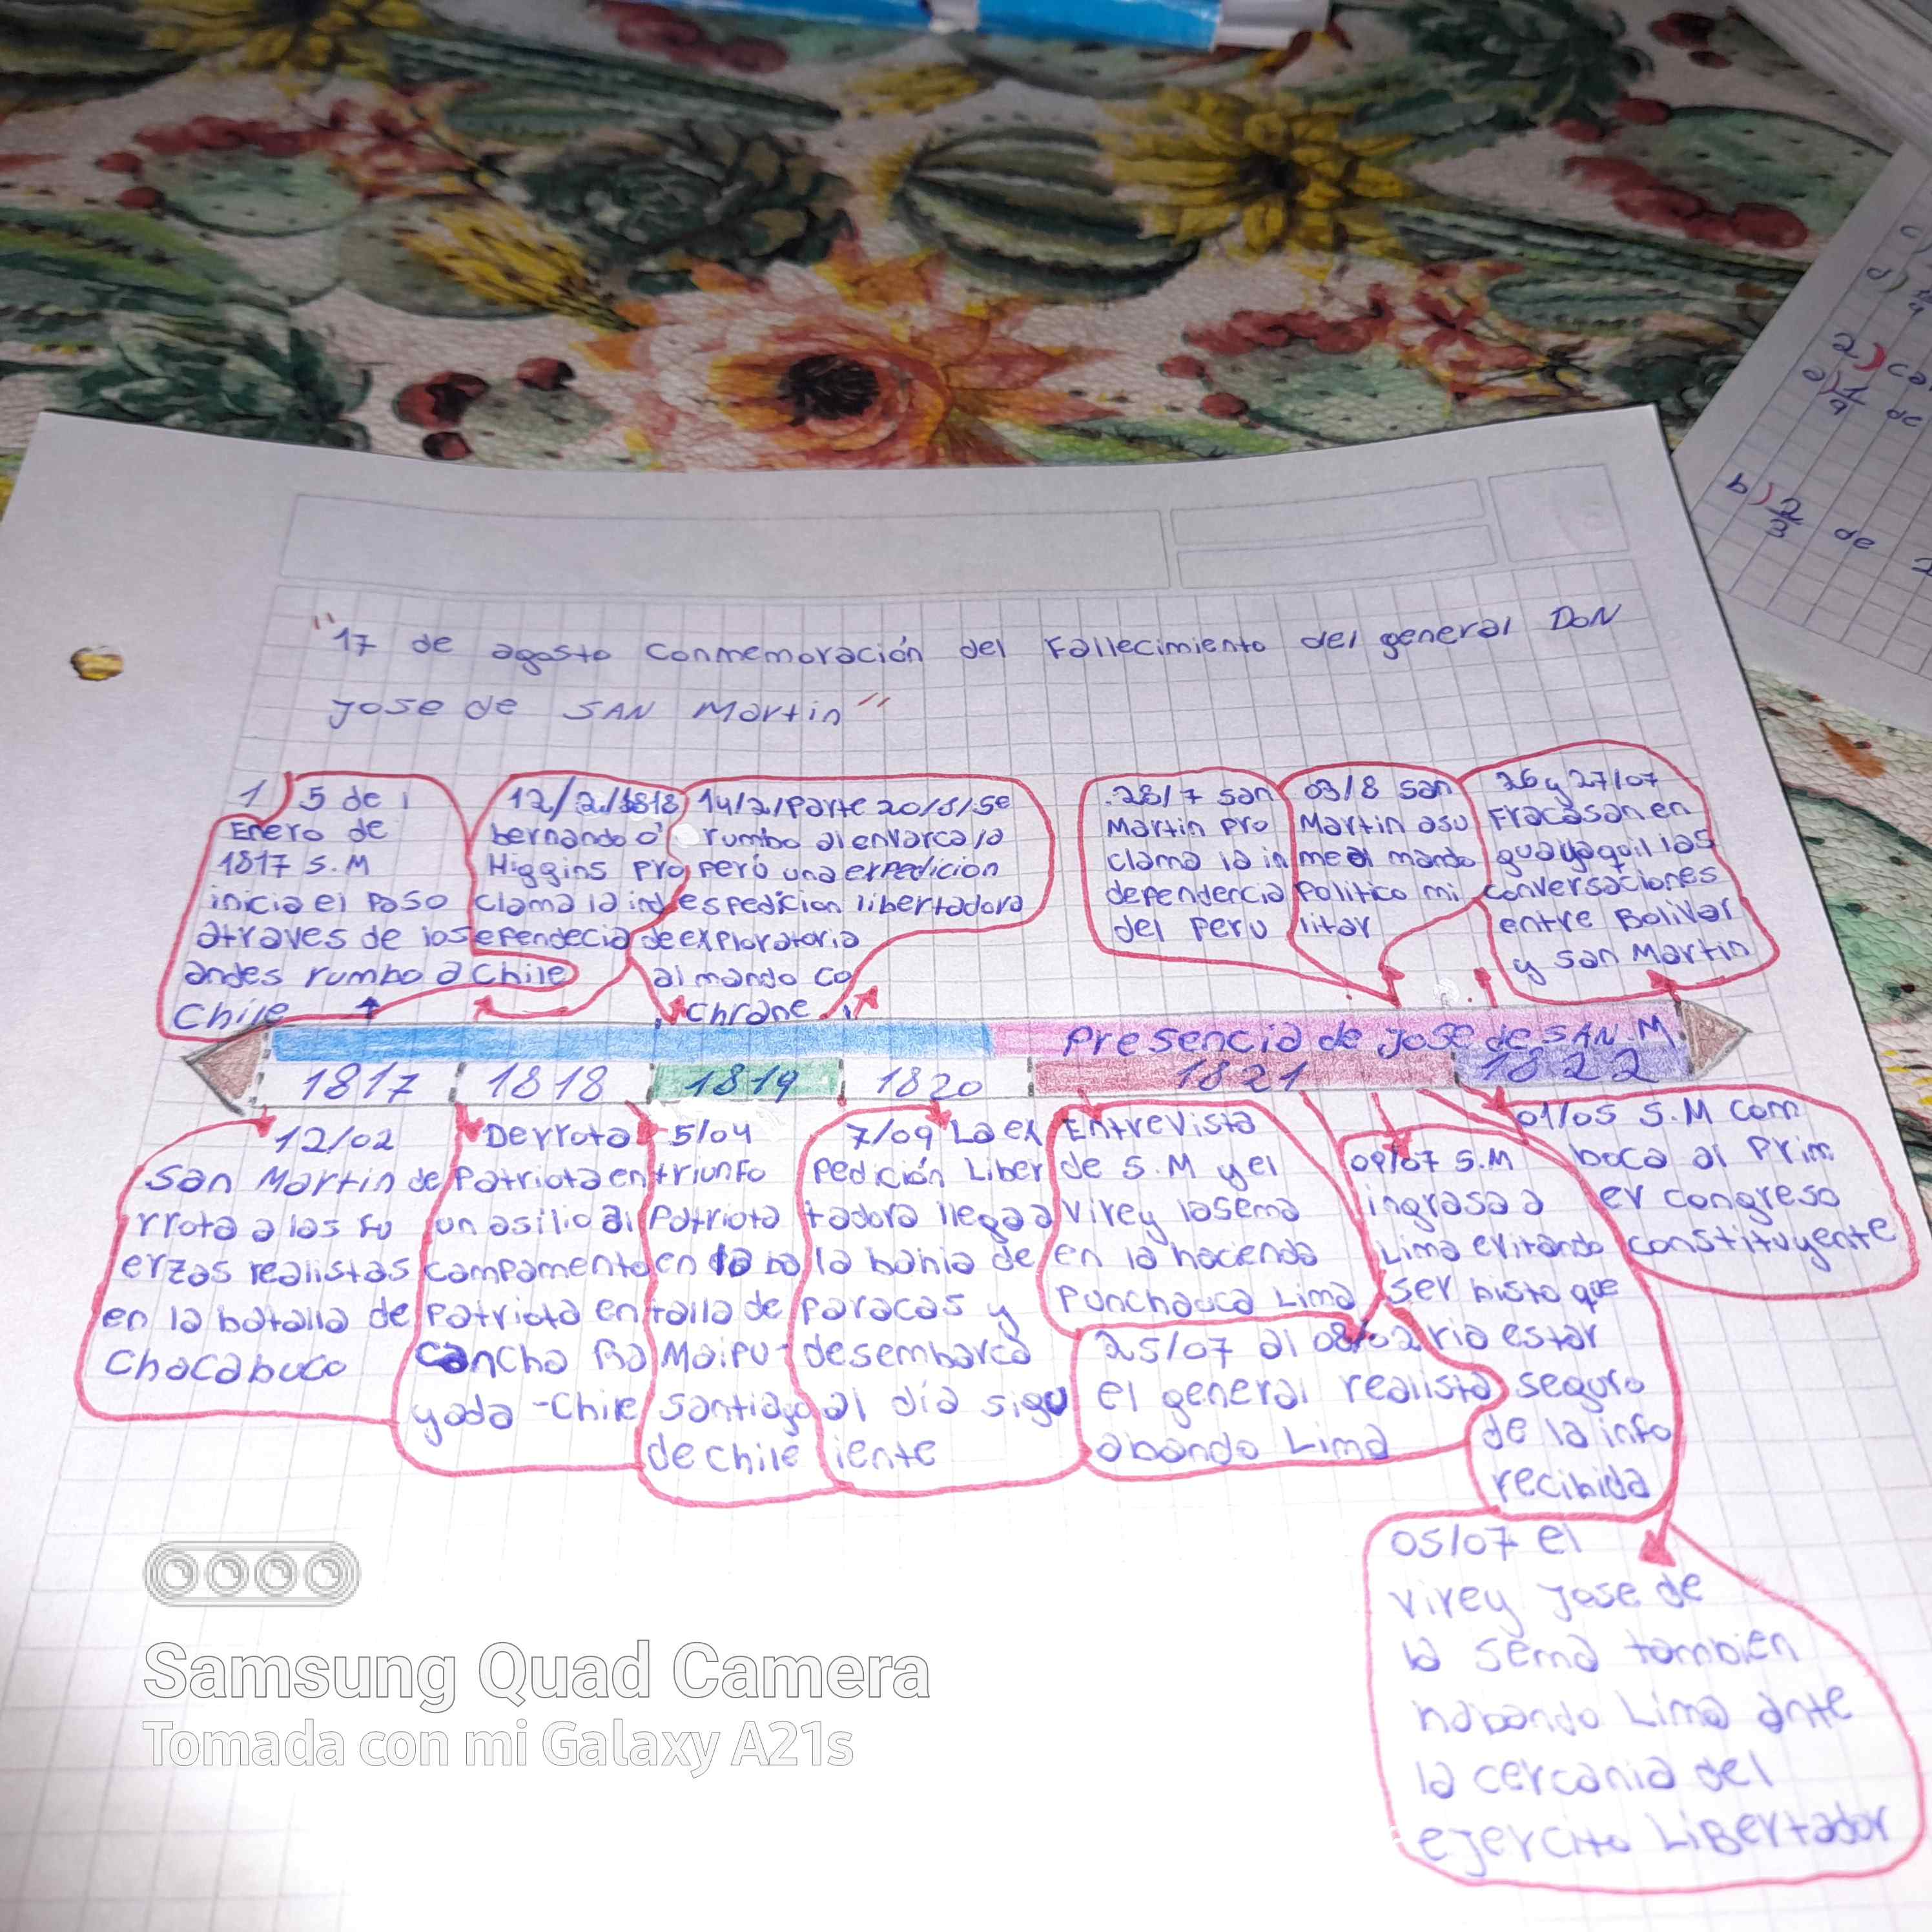 "17 de agosto conmemoración del Fallecimiento del general DON
Jose de SAN Martin"
1) 5 de
Enero de
1817 S.M
inicia el paso
atraves de los
andes rumbo a
Chile
12/2/1818
bernando o'
Higgins pro
clama la ind
ependecia de
Chile
14/2/Parte
rumbo al
perú una
espedicion
exploratoria
al mando co
chrane
20/8/se
envarca la
expedicion
libertadora
28/7 san
Martin pro
clama la in
dependencia
del peru
03/8 san
Martin asu
me el mando
Politico mi
litar
26 y 27/07
Fracasan en
guayaquil las
conversaciones
entre Bolivar
y san Martin
Presencia de Jose de SAN.M
1817 1818 1819 1820 1821 1822
12/02
San Martin de
rrota a las fu
erzas realistas
en la batalla de
Chacabuco
Derrota
Patriota en
un asilio al
campamento
Patriota en
Cancha Ra
yada - Chile
5/04
triunfo
Patriota
en la ba
talla de
Maipu-
Santiago
de chile
7/09 La ex
pedición Liber
tadora llega a
la bahia de
paracas y
desembarca
al día sigu
iente
Entrevista
de S.M y el
Virey laserna
en la hacienda
Punchauca Lima
25/07 al 08/02
el general realista
abando Lima
09/07 S.M
ingrasa a
Lima evitando
ser bisto que
ria estar
seguro
de la info
recibida
01/05 S.M com
boca al Prim
er congreso
constituyente
05/07 el
virey Jose de
la serna tambien
habando Lima ante
la cercania del
ejercito Libertador
2) ca
a) 1/4 de
b) 2/3 de
Samsung Quad Camera
Tomada con mi Galaxy A21s